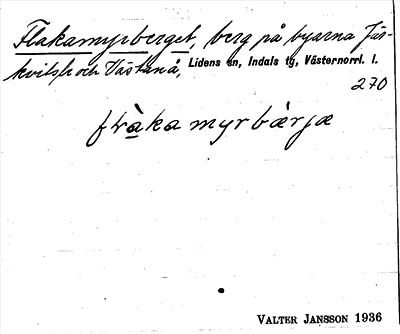 Flakamyrberget, berg på byarna Jär-
kvitsle och Västanå, Lidens sn, Indals tg, Västernorrl. l.
270
flàka myr bàrjæ
VALTER JANSSON 1936